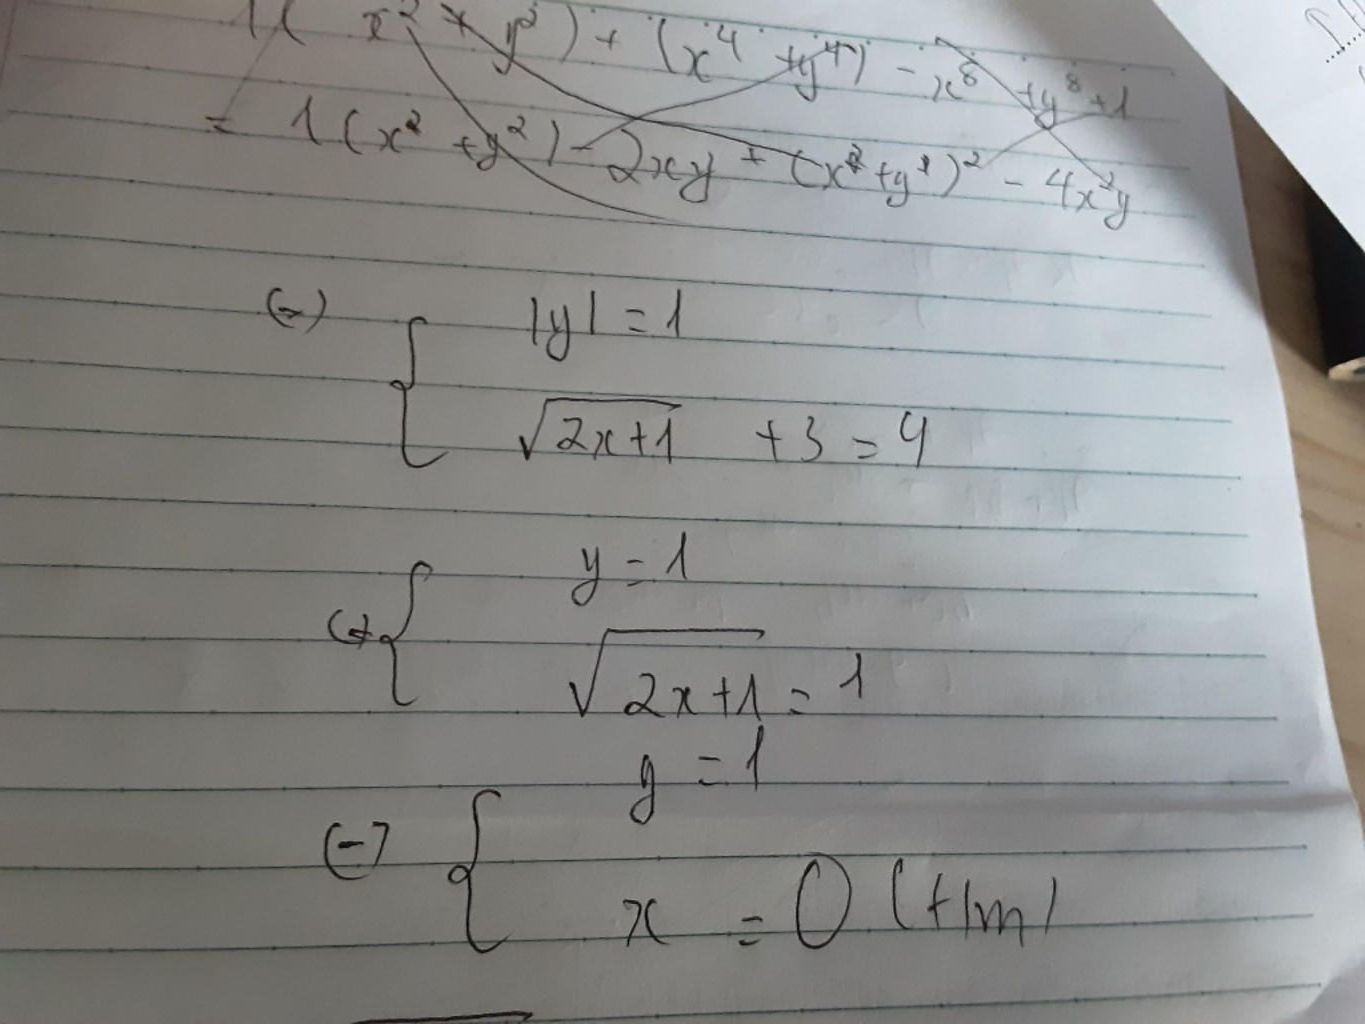 1( x² + y² ) + (x⁴ + y⁴) - x⁸ + y⁸ + 1
= 1 (x² + y²) - 2xy + (x² + y²)² - 4x²y
(=) { |y| = 1
√2x+1 + 3 = 4
(=) { y = 1
√2x+1 = 1
(=) { y = 1
x = 0 (t/m)